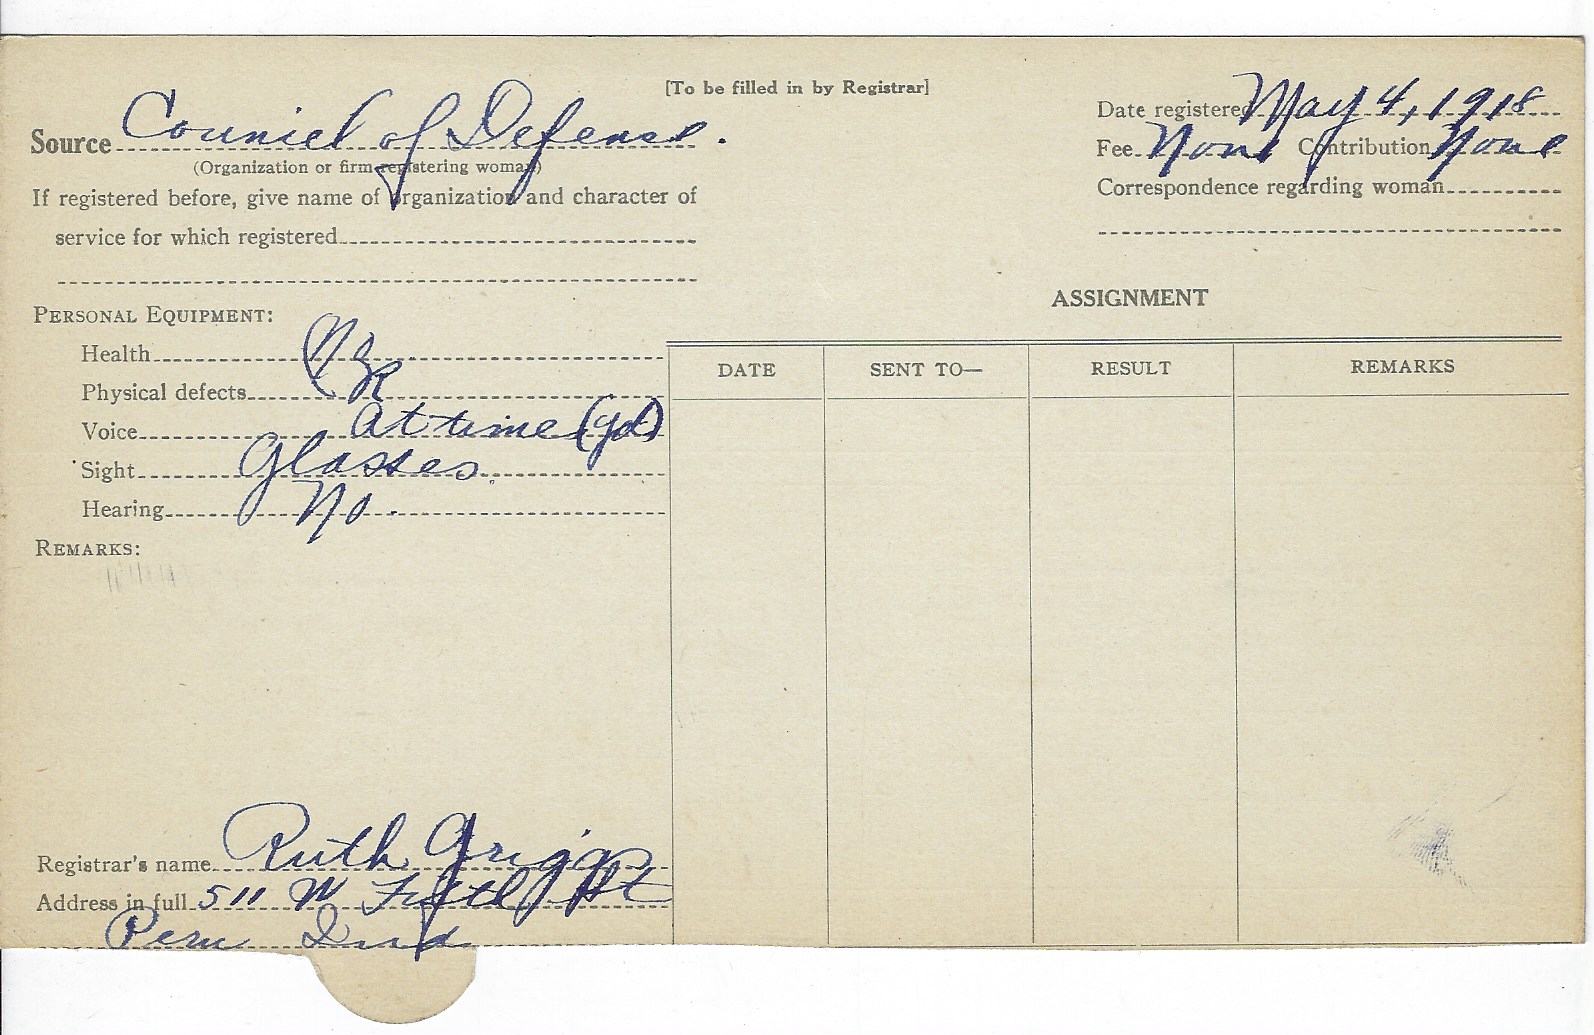 [To be filled in by Registrar]
Source Counicl of Defense.
(Organization or firm registering woman)
If registered before, give name of organization and character of
service for which registered
Date registered May 4, 1918
Fee None Contribution None
Correspondence regarding woman
PERSONAL EQUIPMENT:
Health
Physical defects
Voice At time (gd)
Sight Glasses.
Hearing No.
REMARKS:
ASSIGNMENT
DATE SENT TO— RESULT REMARKS
Registrar's name Ruth Griggs
Address in full 511 W Fifth St
Peru Ind